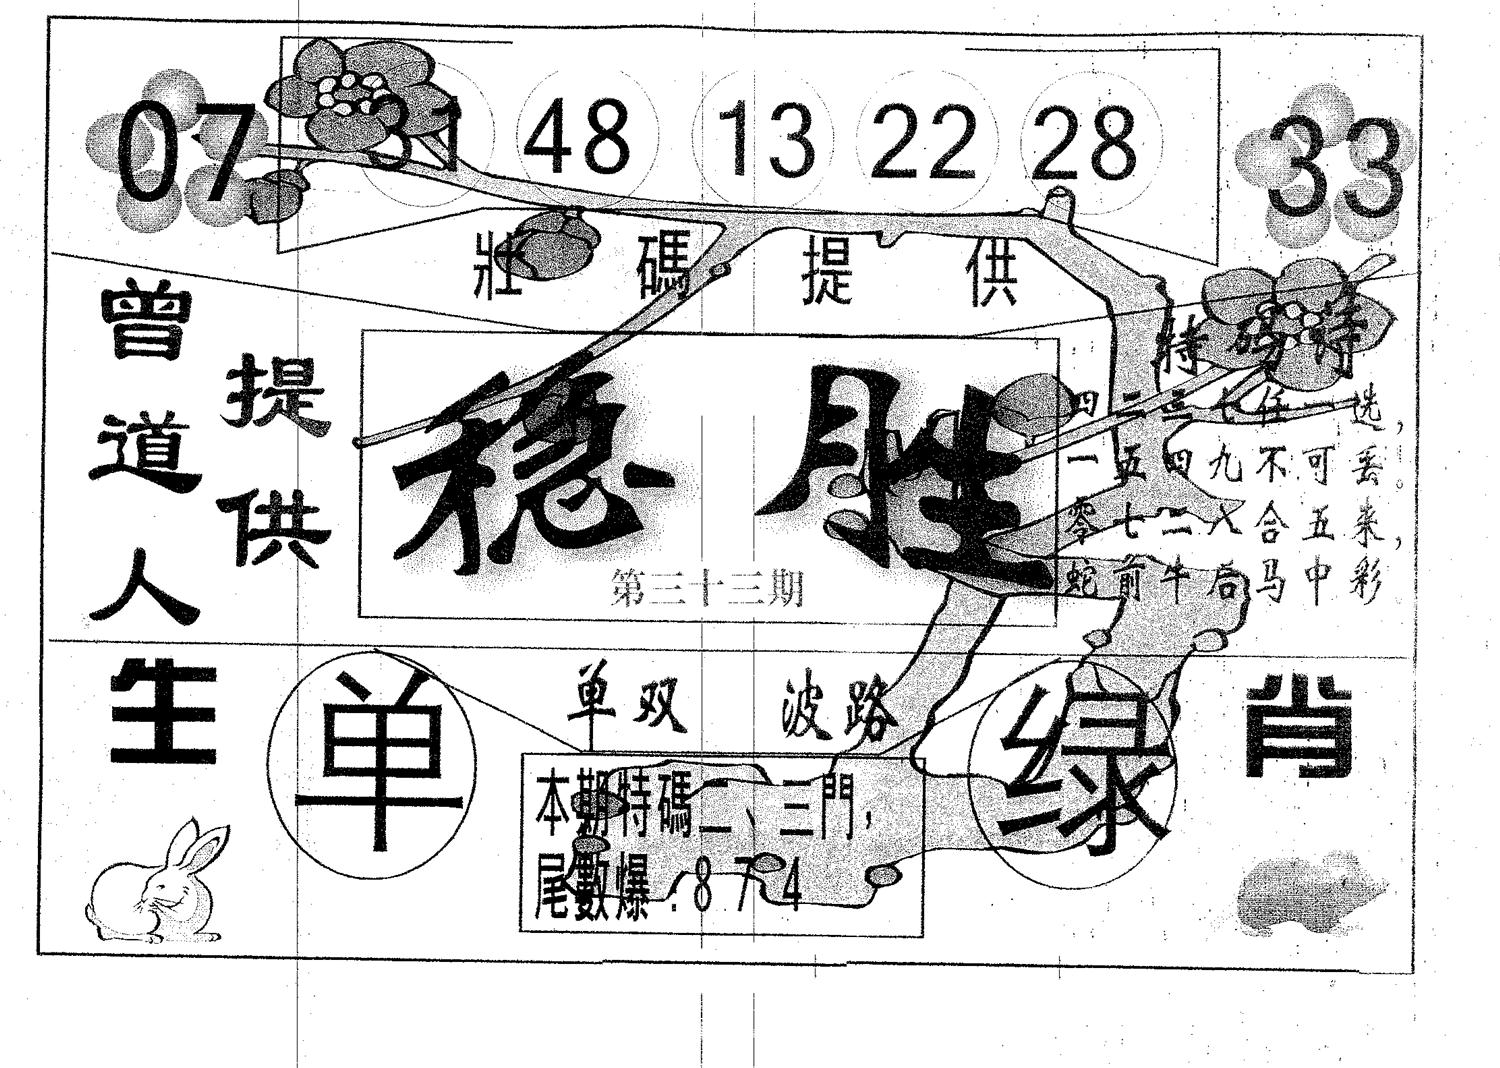 07 31 48 13 22 28 33
壯碼提供
曾道人
提供
稳胜
第三十三期
特码诗
四二三七任一选，
一五四九不可丢。
零七二八合五来，
蛇前牛后马中彩
生肖
单
单双 波路
绿
本期特碼二、三門，
尾數爆：8 7 4